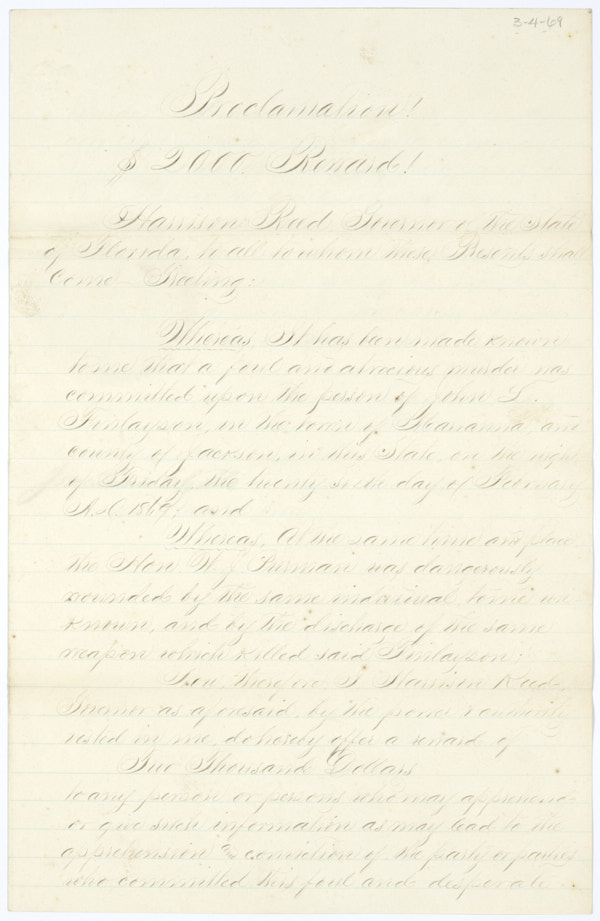 3-4-69
Proclamation!
$2000. Reward!
Harrison Reed Governor of the State
of Florida, to all to whom these, Presents shall
Come Greeting:
Whereas, It has been made known
to me that a foul and atrocious murder was
committed upon the person of John L.
Finlayson, in the town of Marianna, and
county of Jackson, in this State, on the night
of Friday, the twenty sixth day of February
A.D. 1869; and
Whereas, At the same time and place
the Hon W. J. Purman was dangerously
wounded by the same individual, to me un-
known, and by the discharge of the same
weapon which killed said Finlayson;
Now, therefore, I Harrison Reed,
Governor as aforesaid, by the power & authority
vested in me, do hereby offer a reward of
Two Thousand Dollars
to any person or persons who may apprehend
or give such information as may lead to the
apprehension & conviction of the party or parties
who committed this foul and desperate